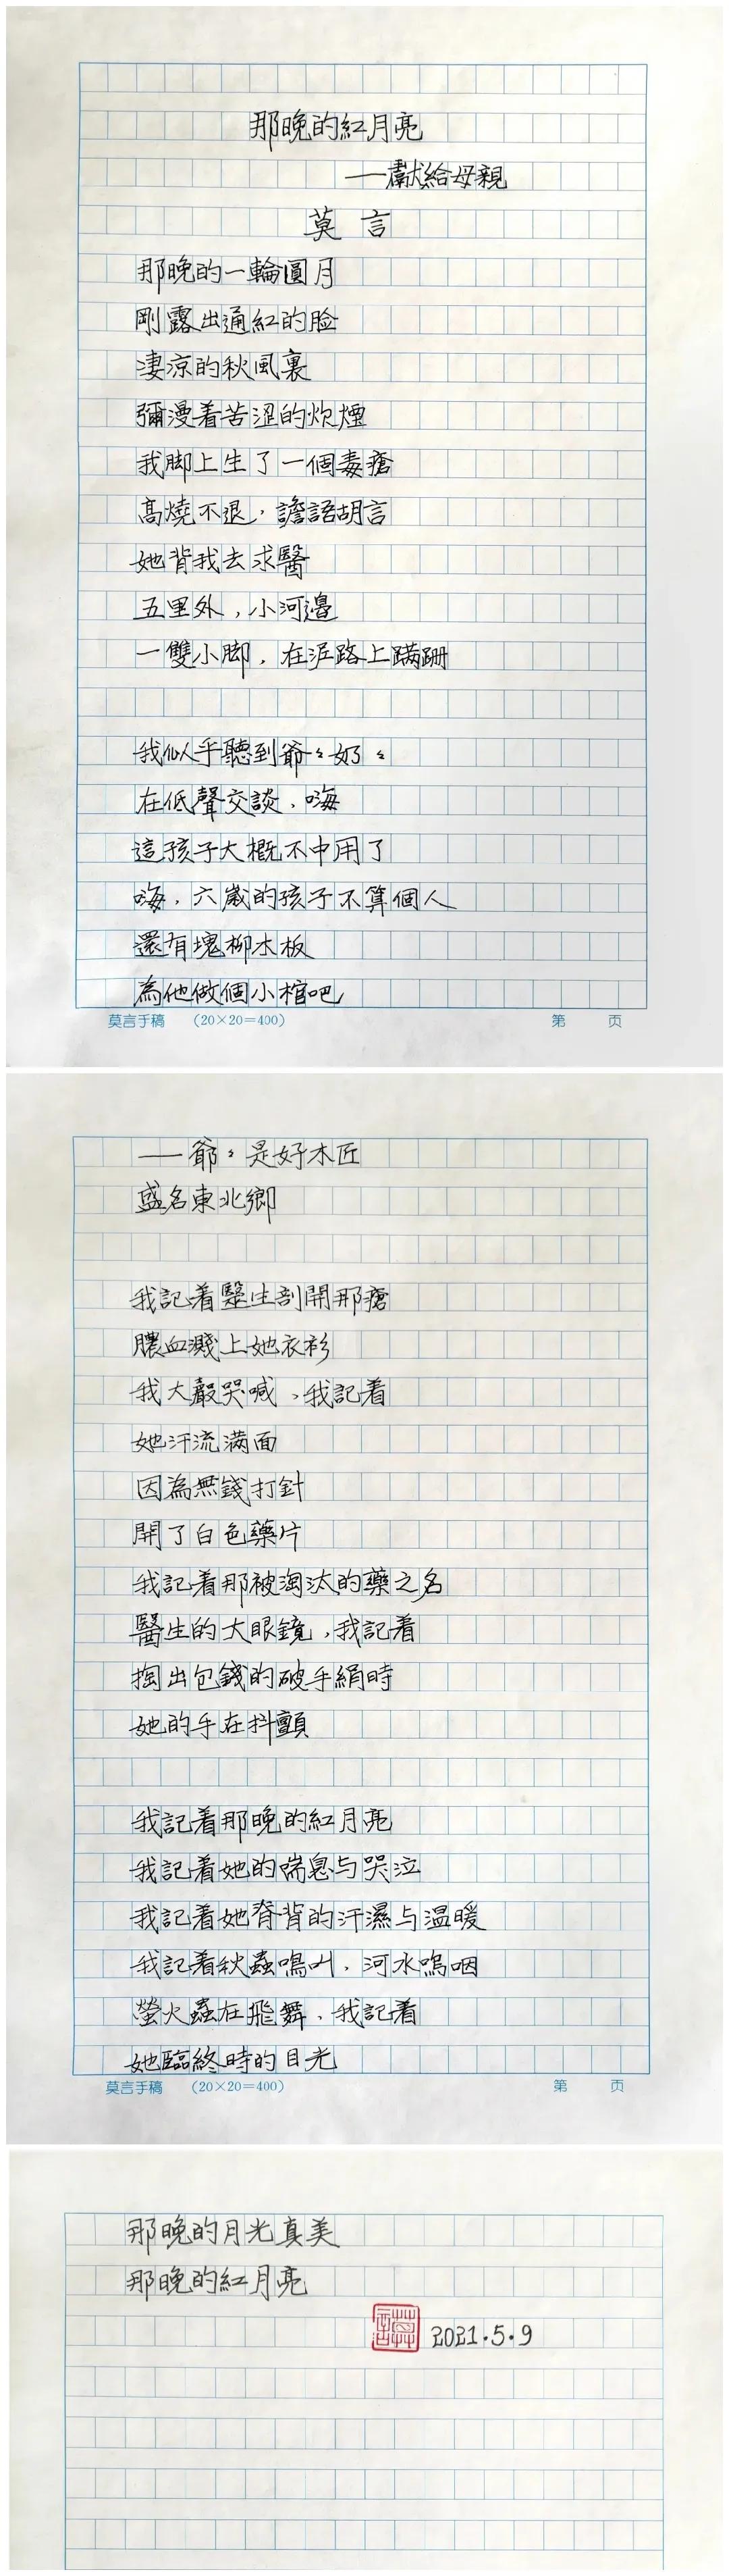 那晚的紅月亮
——獻給母親
莫言
那晚的一輪圓月
剛露出通紅的脸
淒涼的秋風裏
彌漫着苦涩的炊煙
我脚上生了一個毒瘡
高燒不退，譫語胡言
她背我去求醫
五里外，小河邊
一雙小脚，在泥路上蹒跚
我似乎聽到爺〻奶〻
在低聲交談，嗨
這孩子大概不中用了
嗨，六歲的孩子不算個人
還有塊柳木板
為他做個小棺吧
莫言手稿 (20×20=400) 第 页
——爺〻是好木匠
盛名東北鄉
我記着醫生剖開那瘡
膿血濺上她衣衫
我大聲哭喊，我記着
她汗流满面
因為無錢打針
開了白色藥片
我記着那被淘汰的藥之名
醫生的大眼鏡，我記着
掏出包錢的破手絹時
她的手在抖顫
我記着那晚的紅月亮
我記着她的喘息与哭泣
我記着她脊背的汗濕与温暖
我記着秋蟲鳴叫，河水嗚咽
螢火蟲在飛舞，我記着
她臨終時的目光
莫言手稿 (20×20=400) 第 页
那晚的月光真美
那晚的紅月亮
莫言 2021.5.9